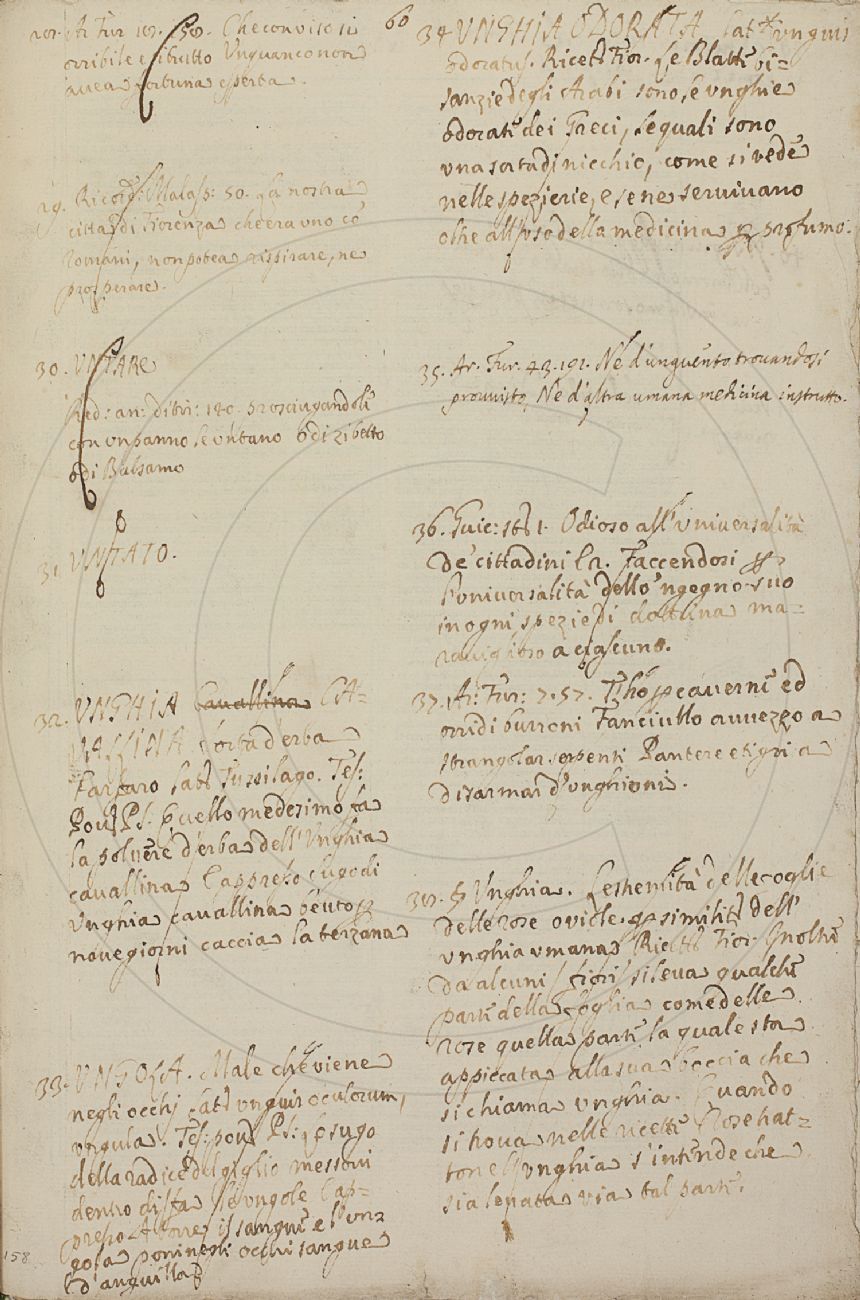 Ar. Fur. 10. 50. Che con viso sì
orribile e brutto Unquanco non
avea fortuna esperta.
29. Ricord: Malasp: 50. La nostra
città di Fiorenza che era uno co'
Romani, non potea rispirare, ne
prosperare.
30. UNTARE
Red: an: ditir: 120. rosciugandoli
con un panno le untano o di zibetto
o di Balsamo
31. UNTATO.
32. UNGHIA Cavallina CA-
VALLINA sorta d'erba
Farfaro Lat. Tussilago. Tes:
Pov. P.S. Quello medesimo fa
la polvere d'erba dell'Unghia
cavallina Cappresso sugo di
Unghia cavallina beuto p
nove giorni caccia la terzana
33. UNGOLA. Male che viene
negli occhj Lat. unguis oculorum,
ungula. Tes: pov. P.S. Lo sugo
della radice del giglio messovi
dentro disfa le ungole Cap-
presso A torre il sangue e l'un-
gola poni negli occhi sangue
d'anguilla
158
60
34 UNGHIA ODORATA Lat. unguis
odoratus. Ricett. Fior. Le Blatte bi-
sanzie degli Arabi sono, l'unghie
odorate dei Greci, le quali sono
una sorta di nicchio, come si vede
nelle spezierie, e se ne servivano
oltre all'uso della medicina p profumo.
35. Ar. Fur. 43. 191. Nè d'unguento trovandosi
provvisto, Nè d'altra umana medicina instrutto.
36. Guic: Odioso all'universalità
de' cittadini Faccendosi p
l'universalità dello 'ngegno suo
in ogni spezie di dottrina ma-
raviglioso a ciascuno.
37. Ar: Fur: 7. 57. p caverne ed
orridi burroni Fanciullo avvezzo a
strangolar serpenti Pantere e tigri a
disarmar d'unghioni.
§ Unghia. L'estremità delle foglie
delle rose o viole p similit. dell'
unghia umana Ricett. Fior. Gnolnre
da alcuni fiori si leva qualche
parte della foglia come delle
rose quella parte la quale sta
appiccata alla sua boccia che
si chiama unghia. Quando
si trova nelle ricette Rose trat-
tone l'unghia s'intende che
sia levata via tal parte.